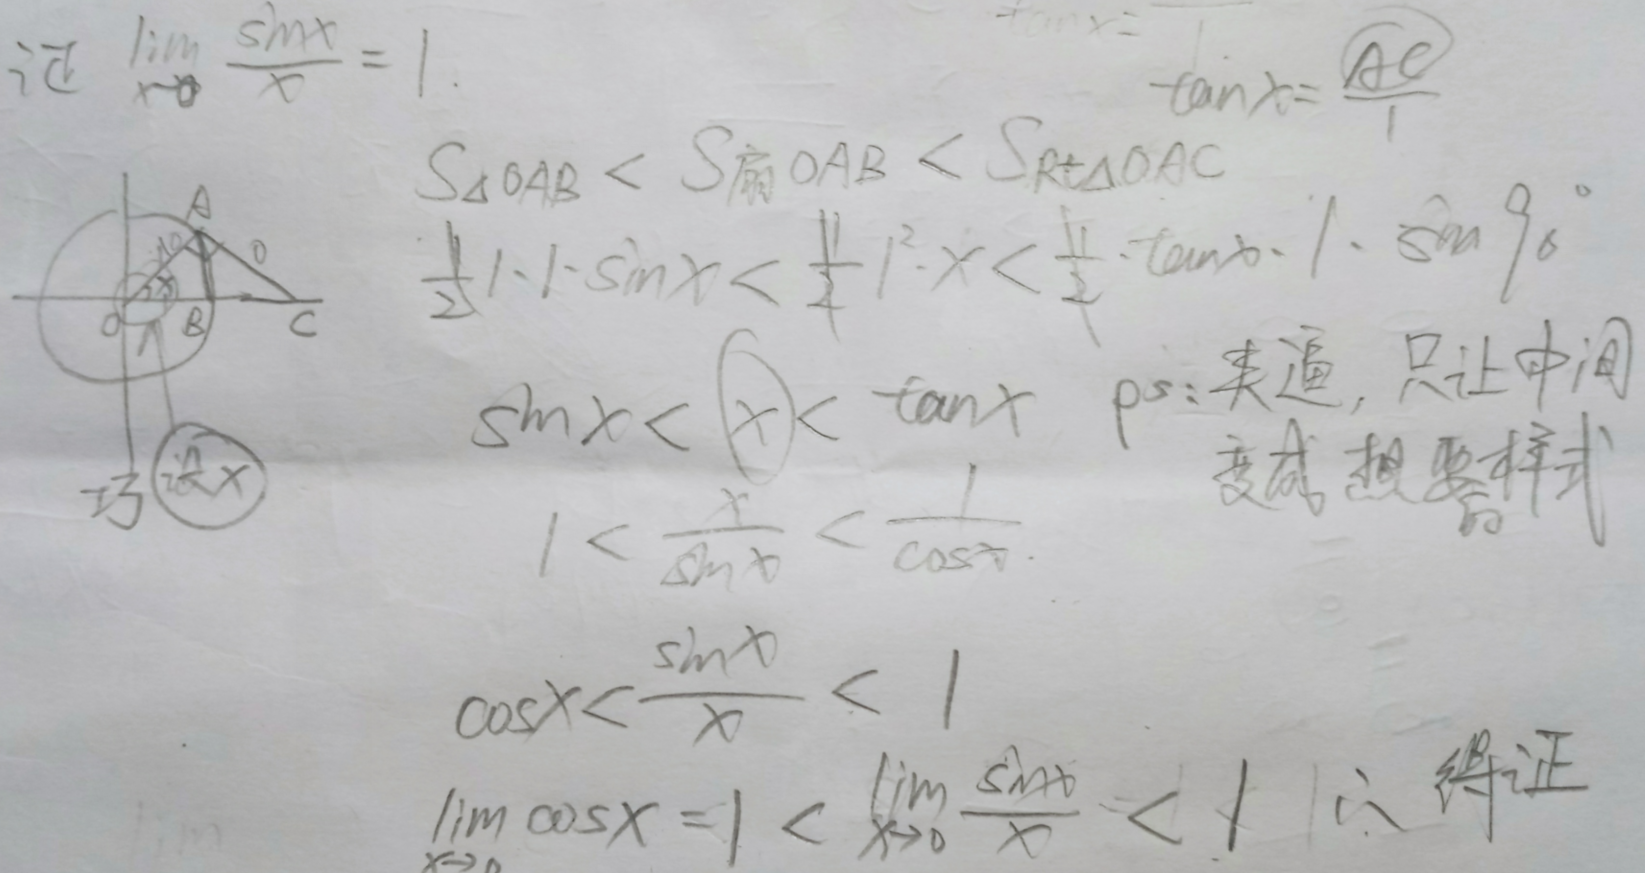 证 lim x→0 sinx/x = 1.
tanx=
tanx= AC/1
S△OAB < S扇OAB < SRt△OAC
1/2 1·1·sinx < 1/2 1²·x < 1/2·tanx·1·sin90°
A
O B C
设x
sinx < x < tanx ps:夹逼,只让中间
变成想要的样式
1 < x/sinx < 1/cosx.
cosx < sinx/x < 1
lim x→0 cosx = 1 < lim x→0 sinx/x < 1 ∴ 得证
lim